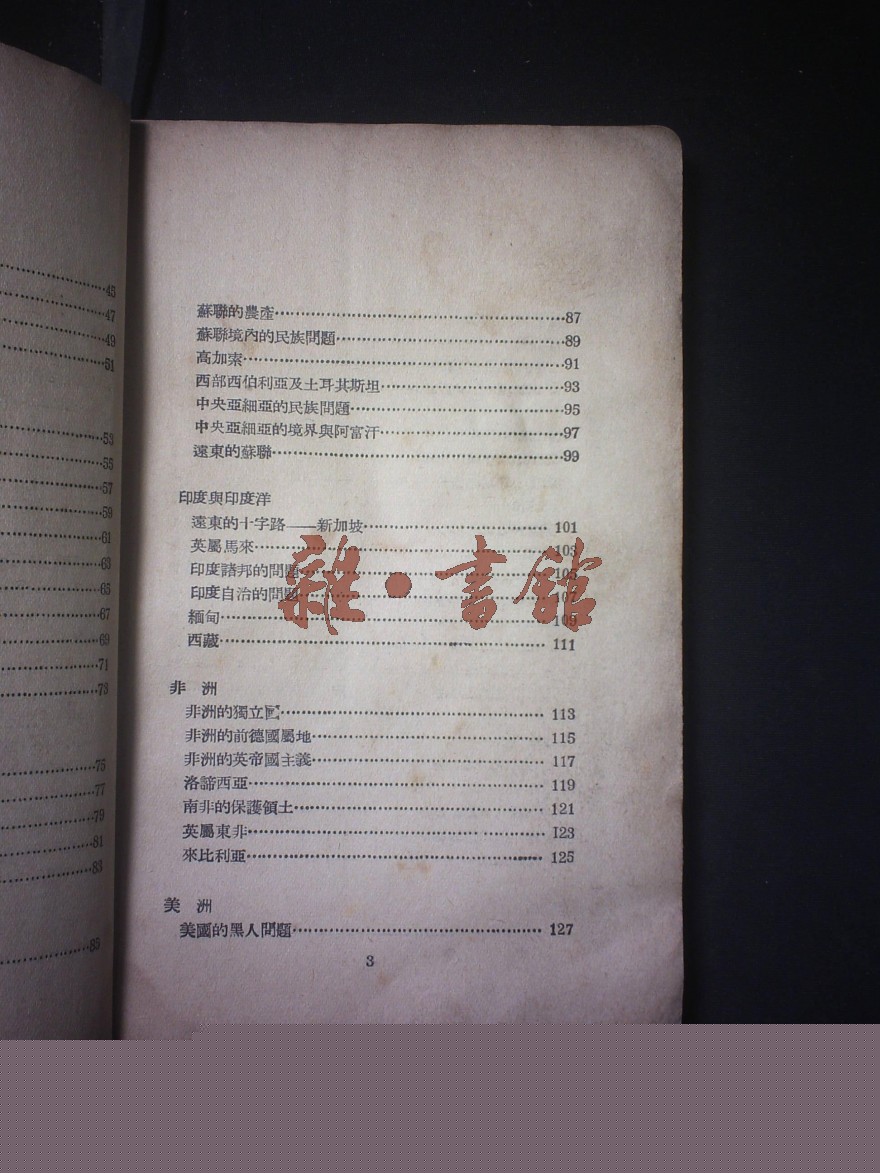 45
47
49
51
53
55
57
59
61
63
65
67
69
71
73
75
77
79
81
83
85
蘇聯的農產……87
蘇聯境內的民族問題……89
高加索……91
西部西伯利亞及土耳其斯坦……93
中央亞細亞的民族問題……95
中央亞細亞的境界與阿富汗……97
遠東的蘇聯……99
印度與印度洋
遠東的十字路——新加坡……101
英屬馬來……103
印度諸邦的問題……105
印度自治的問題……107
緬甸……109
西藏……111
非 洲
非洲的獨立國……113
非洲的前德國屬地……115
非洲的英帝國主義……117
洛諦西亞……119
南非的保護領土……121
英屬東非……123
來比利亞……125
美 洲
美國的黑人問題……127
3
雜·書館